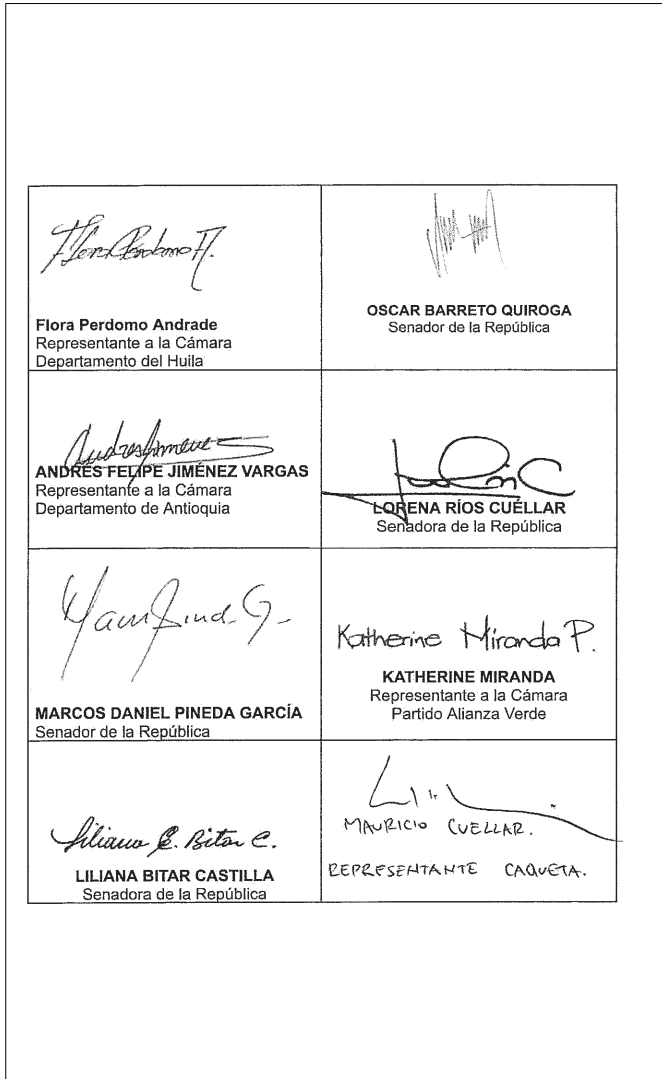 Flora Perdomo A.
Flora Perdomo Andrade
Representante a la Cámara
Departamento del Huila
OSCAR BARRETO QUIROGA
Senador de la República
ANDRÉS FELIPE JIMÉNEZ VARGAS
Representante a la Cámara
Departamento de Antioquia
LORENA RÍOS CUÉLLAR
Senadora de la República
MARCOS DANIEL PINEDA GARCÍA
Senador de la República
Katherine Miranda P.
KATHERINE MIRANDA
Representante a la Cámara
Partido Alianza Verde
Liliana E. Bitar C.
LILIANA BITAR CASTILLA
Senadora de la República
MAURICIO CUELLAR.
REPRESENTANTE CAQUETA.